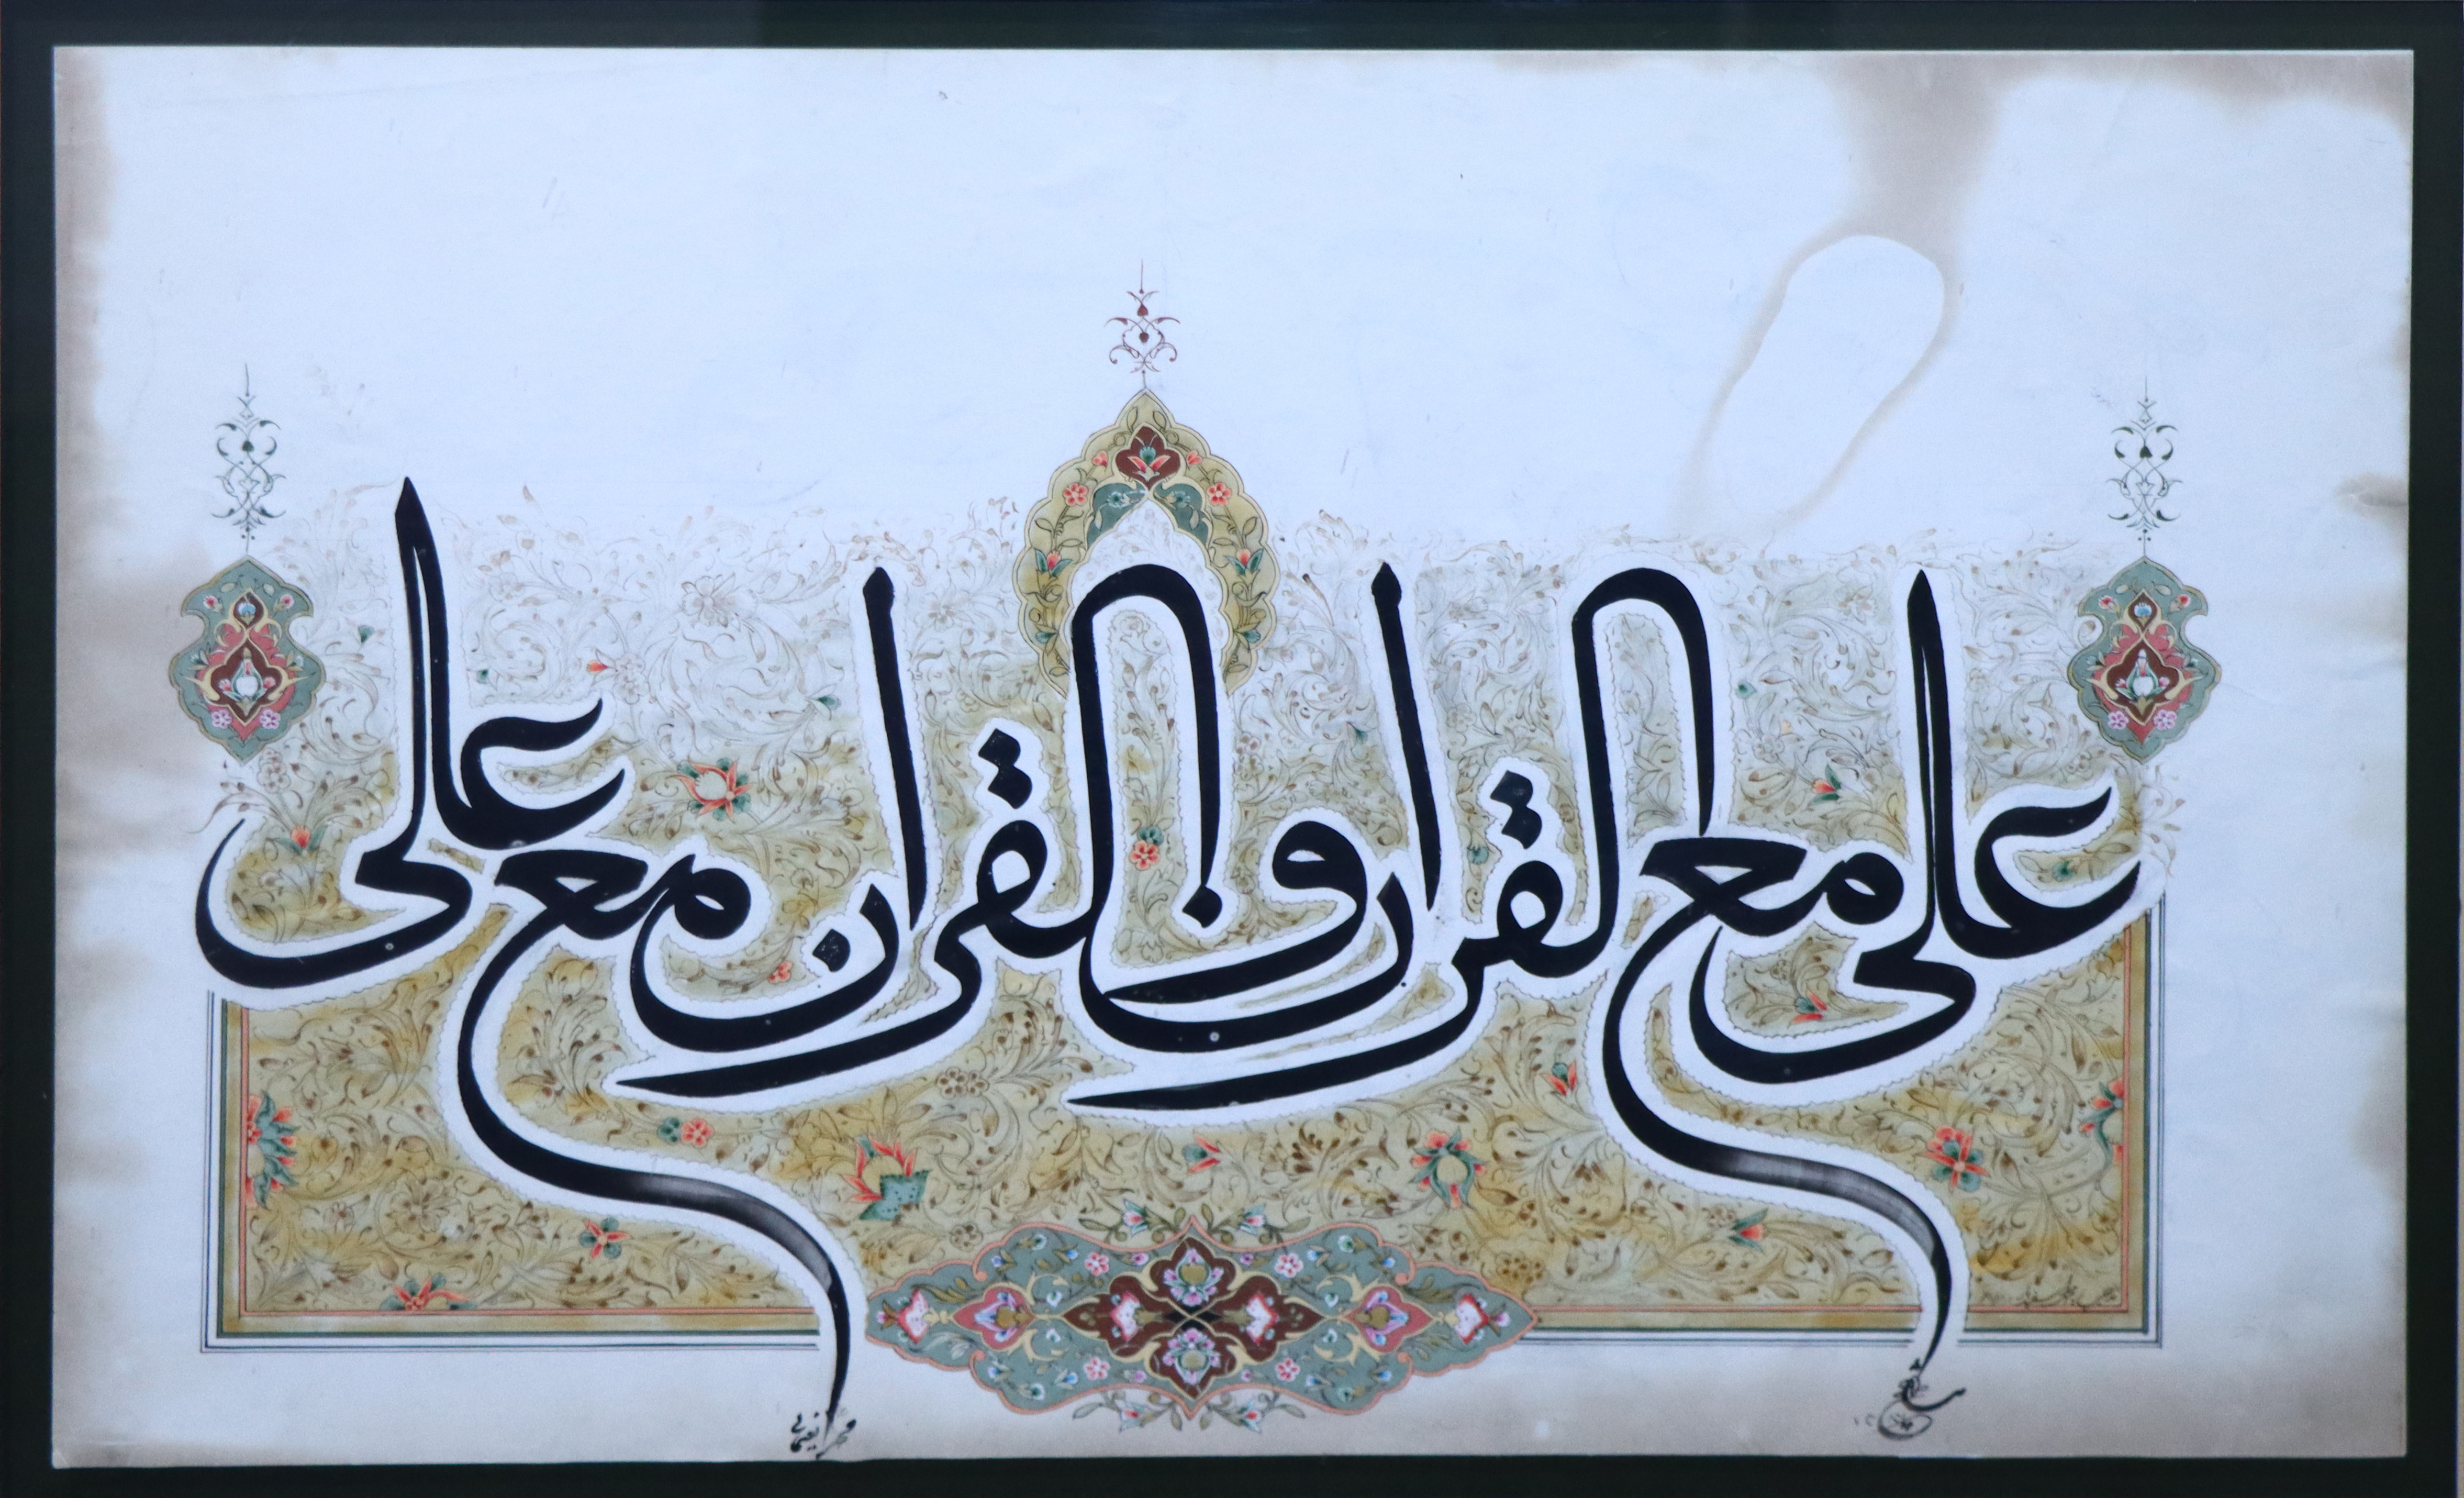 علی مع القران و القران مع علی